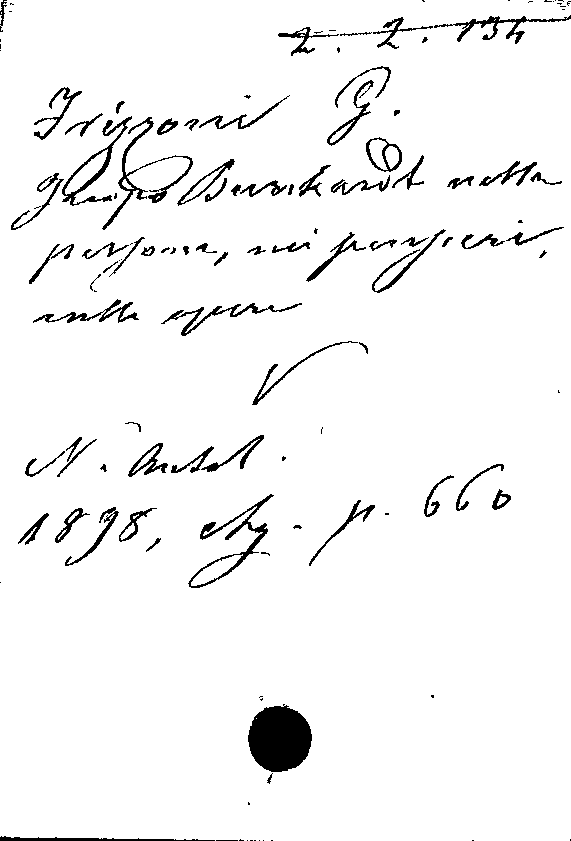 2. 2. 134
Frizzoni G.
Jacopo Burckardt nella
persona, nei pensieri,
nelle opere
V
N. Antol.
1898, p. 660